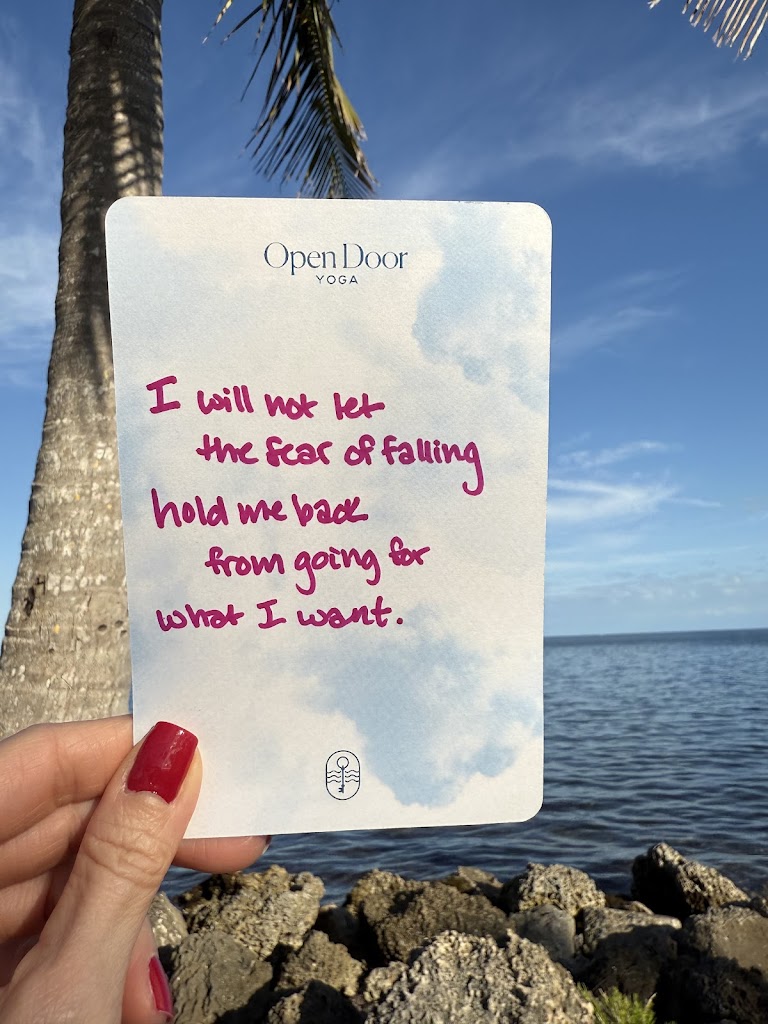 Open Door
YOGA
I will not let
the fear of falling
hold me back
from going for
what I want.